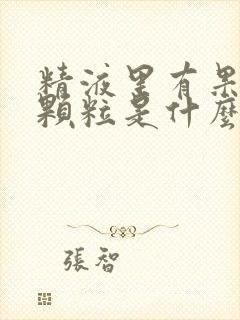 精液里有果
顆粒是什麼
張智